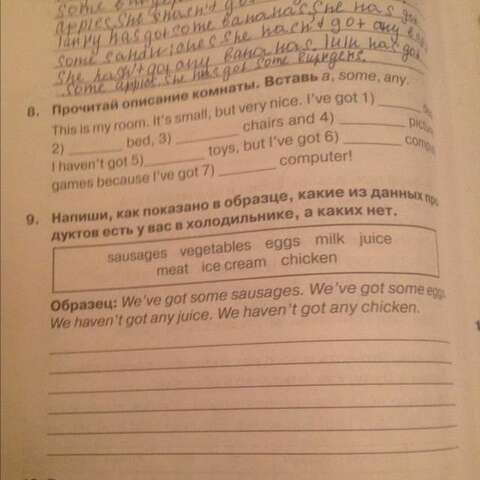 apples. She hasn't got
some bananas. She has got
some sandwiches. She hasn't got any
She hasn't got any bananas. has got
some apples. She has got some burgers.
8. Прочитай описание комнаты. Вставь a, some, any.
This is my room. It's small, but very nice. I've got 1)
2) bed, 3) chairs and 4)
I haven't got 5) toys, but I've got 6)
games because I've got 7) computer!
9. Напиши, как показано в образце, какие из данных про
дуктов есть у вас в холодильнике, а каких нет.
sausages vegetables eggs milk juice
meat ice cream chicken
Образец: We've got some sausages. We've got some eggs.
We haven't got any juice. We haven't got any chicken.